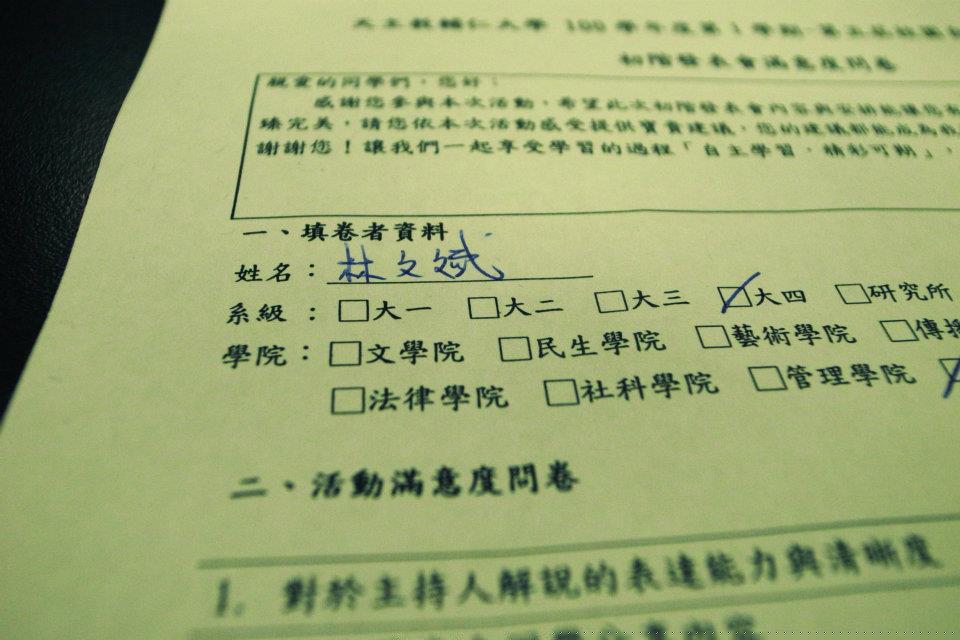 天主教輔仁大學 100 學年度第 1 學期
初階發表會滿意度問卷
親愛的同學們，您好：
感謝您參與本次活動，希望此次初階發表會內容與安排能讓您
臻完美，請您依本次活動感受提供寶貴建議，您的建議都能成為我
謝謝您！讓我們一起享受學習的過程「自主學習，精彩可期」，
一、填卷者資料
姓名：林文斌
系級：□大一 □大二 □大三 ☑大四 □研究所
學院：□文學院 □民生學院 □藝術學院 □傳播
□法律學院 □社科學院 □管理學院
二、活動滿意度問卷
1. 對於主持人解說的表達能力與清晰度